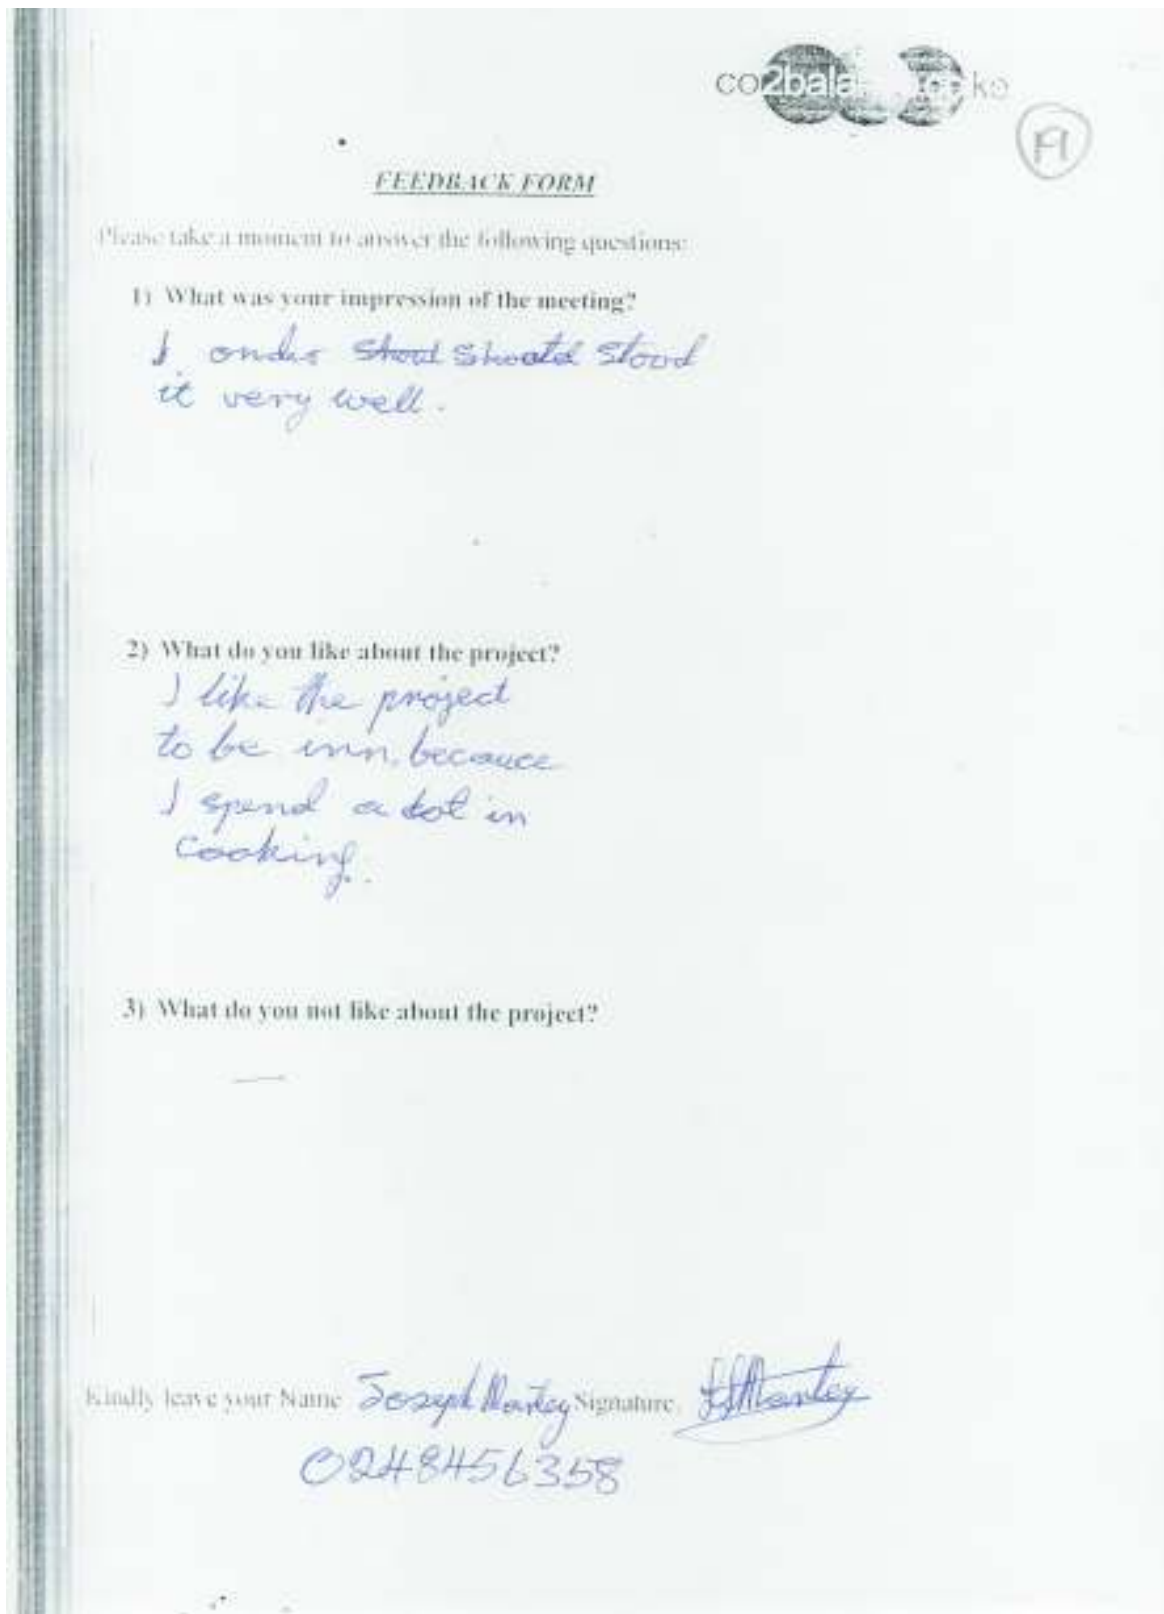 co2bala
FEEDBACK FORM
Please take a moment to answer the following questions:
1) What was your impression of the meeting?
I onder stood
it very well.
2) What do you like about the project?
I like the project
to be inn, becauce
I spend a lot in
cooking.
3) What do you not like about the project?
Kindly leave your Name Joseph Martey Signature.
0248456358